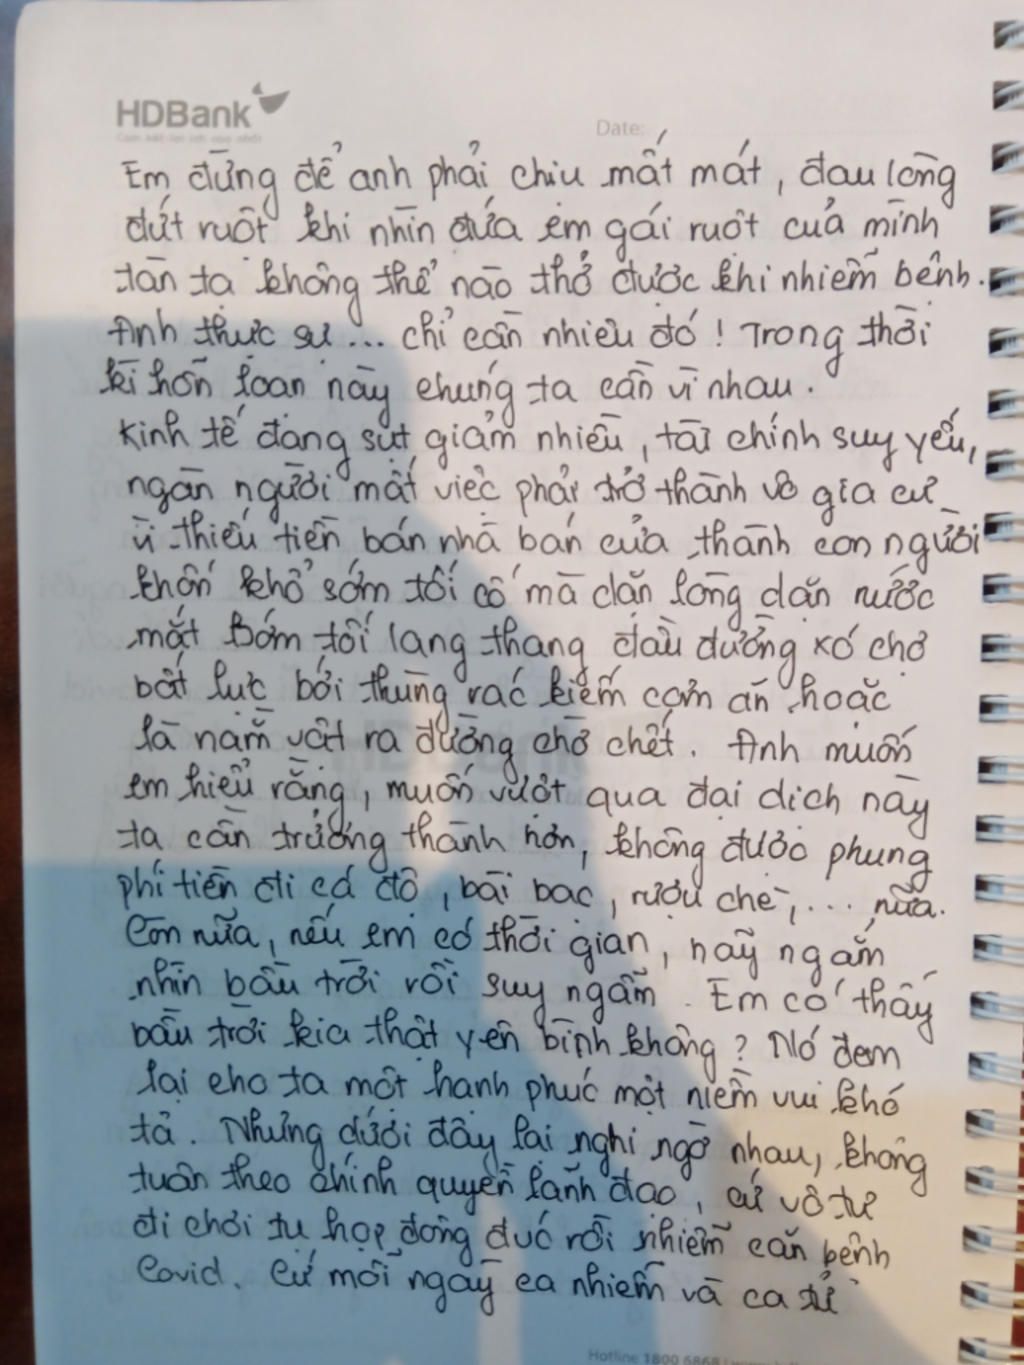 HDBank
Cam kết lợi ích cao nhất
Date:
Em đừng để anh phải chiu mất mát, đau lòng
đứt ruột khi nhìn đứa em gái ruôt của mình
tàn tạ không thể nào thở được khi nhiễm bênh.
Anh thực sự ... chỉ cần nhiêu đó! Trong thời
kì hỗn loan này chúng ta cần vì nhau.
Kinh tế đang sụt giảm nhiều, tài chính suy yếu,
ngàn người mất việc phải trở thành vô gia cư
vì thiếu tiền bán nhà bán cửa thành con người
khốn khổ sớm tối cố mà dằn lòng dằn nước
mắt sớm tối lang thang đầu đường xó chợ
bất lực bới thùng rác kiếm cơm ăn hoặc
là nằm vật ra đường chờ chết. Anh muốn
em hiểu rằng, muốn vượt qua đại dich này
ta cần trưởng thành hơn, không được phung
phí tiền đi cá độ, bài bạc, rượu chè, ... nữa.
Còn nữa, nếu em có thời gian, hãy ngắm
nhìn bầu trời rồi suy ngẫm. Em có thấy
bầu trời kia thật yên bình không? Nó đem
lại cho ta một hạnh phúc một niềm vui khó
tả. Nhưng dưới đây lai nghi ngờ nhau, không
tuân theo chính quyền lãnh đạo, cứ vô tư
đi chơi tụ họp đông đúc rồi nhiễm căn bênh
Covid. Cứ mỗi ngày ca nhiễm và ca tử
Hotline 1800 6868